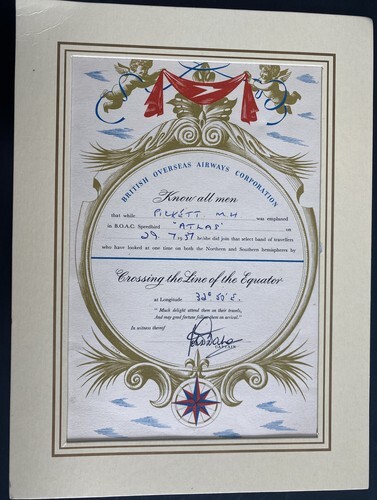 BRITISH OVERSEAS AIRWAYS CORPORATION
Know all men
that while PICKETT M.H was emplaned
in B.O.A.C. Speedbird "ATLAS" on
29. 7. 57 he/she did join that select band of travellers
who have looked at one time on both the Northern and Southern hemispheres by
Crossing the Line of the Equator
at Longitude 32° 50' E.
"Much delight attend them on their travels,
And may good fortune follow them on arrival."
In witness thereof
CAPTAIN